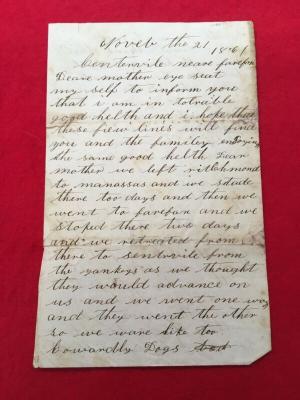 Noveb the 21 1861
Centervile neare farefax
Deare mother eye seat
my self to inform you
that i am in totrable
good helth and i hope that
these fiew lines will find
you and the familey enjoying
the same good helth Dear
mother we left ritchmond
to manassas and we staide
there too days and then we
went to farefax and we
stoped there two days
and we retreated from
there to sentrvile from
the yankeys as we thought
they would advance on
us and we went one way
and they went the other
so we ware like too
Cowardly Dogs